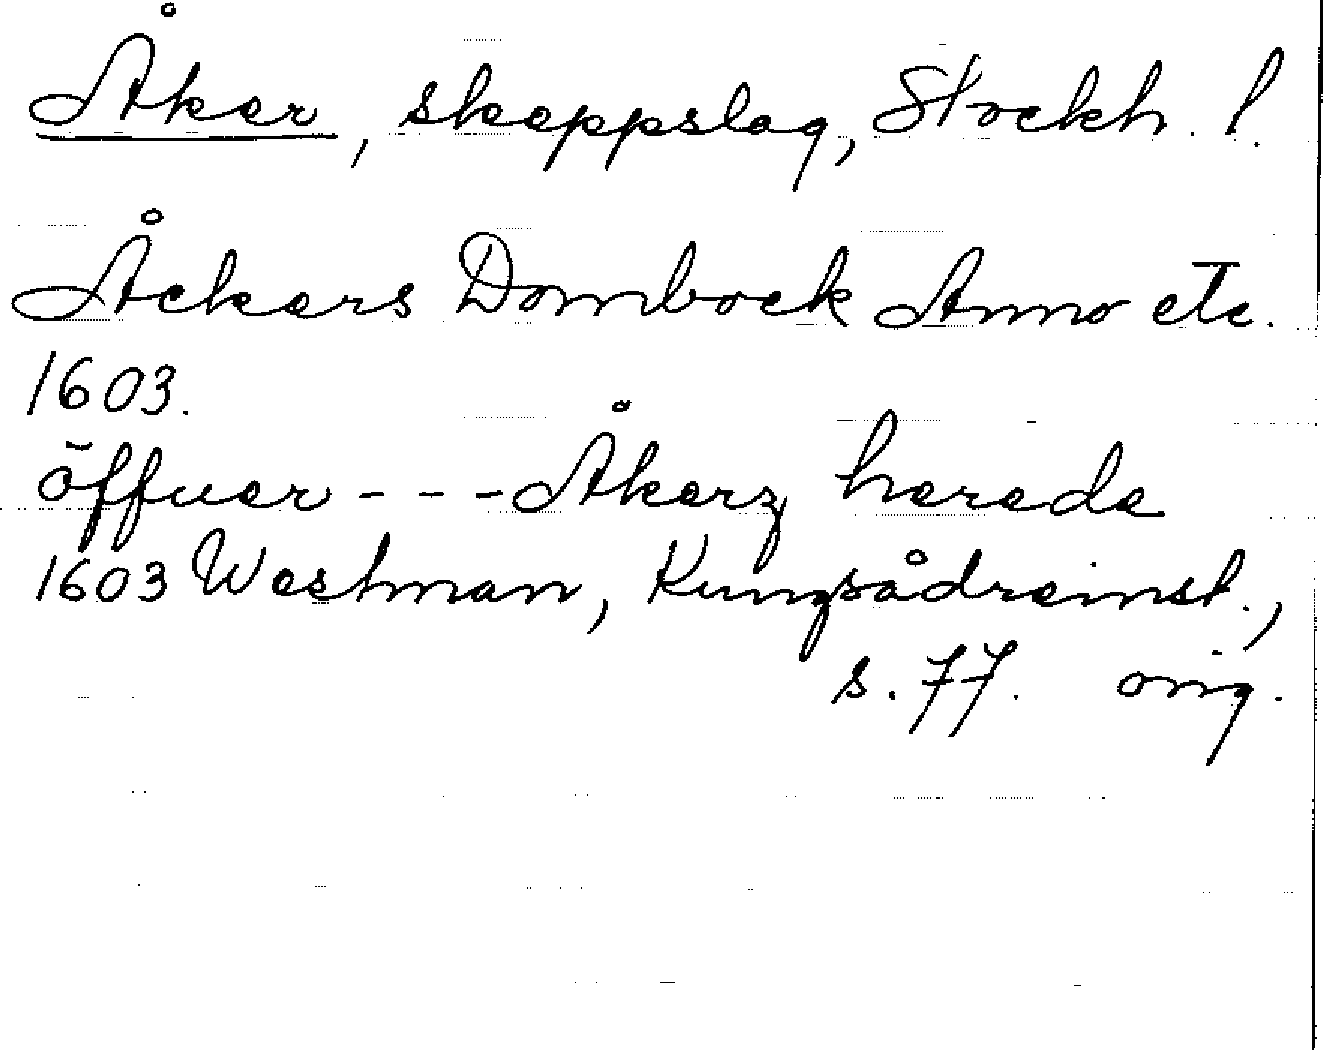 Åker, skeppslag, Stockh. l.
Åckers Dombock Anno etc.
1603.
öffuer - - - Åkerz herede
1603 Westman, Kungsådreinst.,
s. 77. orig.